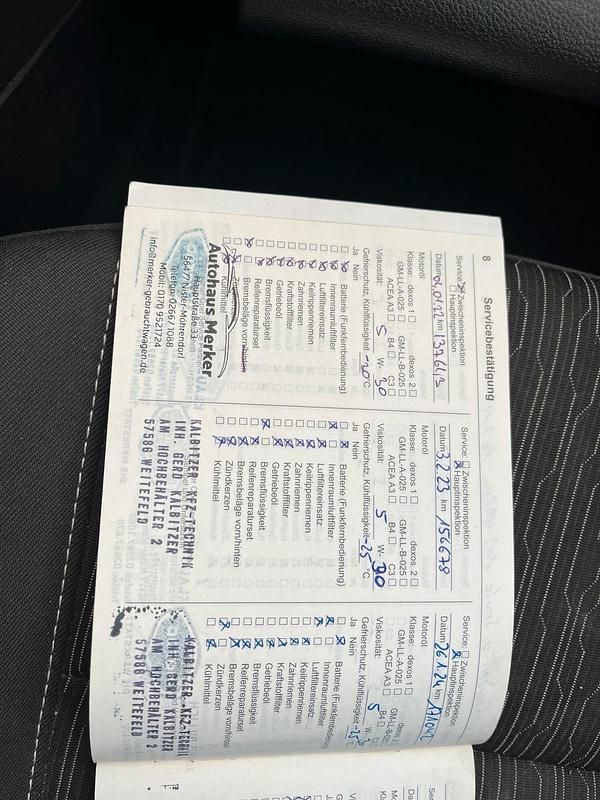 8 Servicebestätigung
Service: Zwischeninspektion
Hauptinspektion
Datum km 137613
Motoröl
Klasse: dexos 1 dexos 2
GM-LL-A-025 GM-LL-B-025
ACEA A3 B4 C3
Viskosität: 5 W- 30
Gefrierschutz, Kühlflüssigkeit -30 °C
Ja Nein
Batterie (Funkfernbedienung)
Innenraumluftfilter
Luftfiltereinsatz
Keilrippenriemen
Zahnriemen
Kraftstofffilter
Getriebeöl
Bremsflüssigkeit
Reifenreparaturset
Bremsbeläge vorn/hinten
Zündkerzen
Kühlmittel
Autohaus Merker
Hauptstraße 33
56477 Nister-Möhrendorf
Mobil: 0170 9521724
info@merker-gebrauchtwagen.de
Service: Zwischeninspektion
Hauptinspektion
Datum 3.2.23 km 156678
Motoröl
Klasse: dexos 1 dexos 2
GM-LL-A-025 GM-LL-B-025
ACEA A3 B4 C3
Viskosität: 5 W- 30
Gefrierschutz, Kühlflüssigkeit -25 °C
Ja Nein
Batterie (Funkfernbedienung)
Innenraumluftfilter
Luftfiltereinsatz
Keilrippenriemen
Zahnriemen
Kraftstofffilter
Getriebeöl
Bremsflüssigkeit
Reifenreparaturset
Bremsbeläge vorn/hinten
Zündkerzen
Kühlmittel
KALBITZER KFZ-TECHNIK
INH. GERD KALBITZER
AM HOCHBEHÄLTER 2
57586 WEITEFELD
Service: Zwischeninspektion
Hauptinspektion
Datum 26.1.24 km
Motoröl
Klasse: dexos 1
GM-LL-A-025
ACEA A3 B4
Viskosität: 5 W-
Gefrierschutz, Kühlflüssigkeit -25 °C
Ja Nein
Batterie
Innenraumluftfilter
Luftfiltereinsatz
Keilrippenriemen
Zahnriemen
Kraftstofffilter
Getriebeöl
Bremsflüssigkeit
Reifenreparaturset
Bremsbeläge vorn/hinten
Zündkerzen
Kühlmittel
KALBITZER KFZ-TECHNIK
INH. GERD KALBITZER
AM HOCHBEHÄLTER 2
57586 WEITEFELD